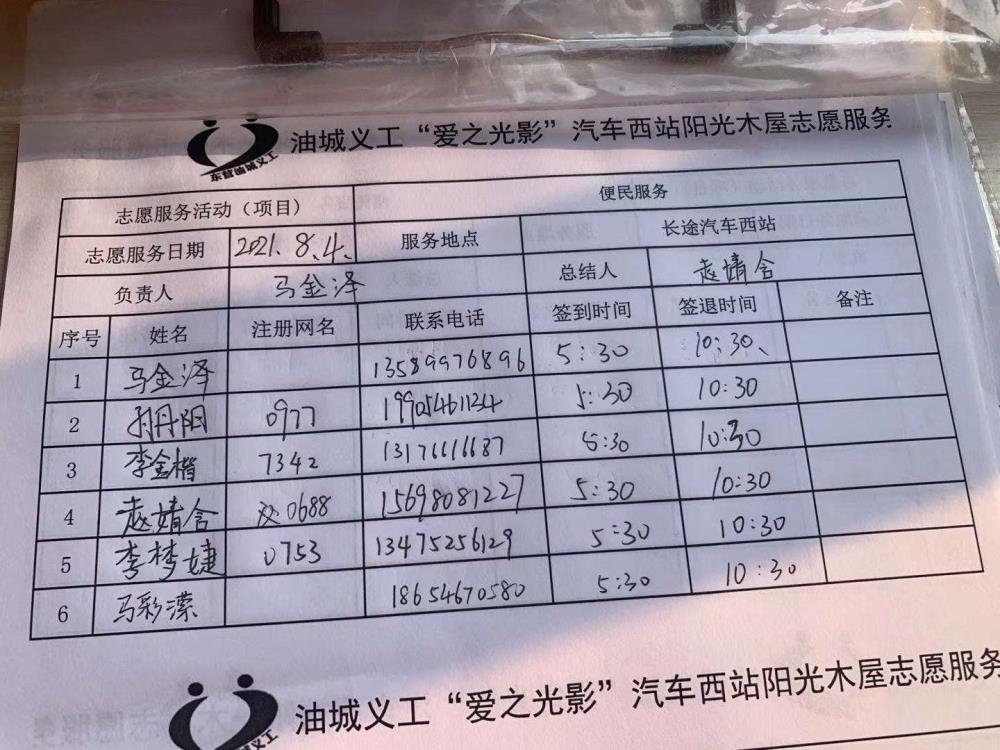 油城义工“爱之光影”汽车西站阳光木屋志愿服务
东营油城义工
志愿服务活动（项目） 便民服务
志愿服务日期 2021.8.4. 服务地点 长途汽车西站
负责人 马金泽 总结人 赵婧含
序号 姓名 注册网名 联系电话 签到时间 签退时间 备注
1 马金泽 13589976896 5:30 10:30、
2 孙丹阳 0977 19905461124 5:30 10:30
3 李金楷 7342 13176611687 5:30 10:30
4 赵婧含 双0688 15698081227 5:30 10:30
5 李梦婕 0753 13475256129 5:30 10:30
6 马彩潆 18654670580 5:30 10:30
油城义工“爱之光影”汽车西站阳光木屋志愿服务
义工